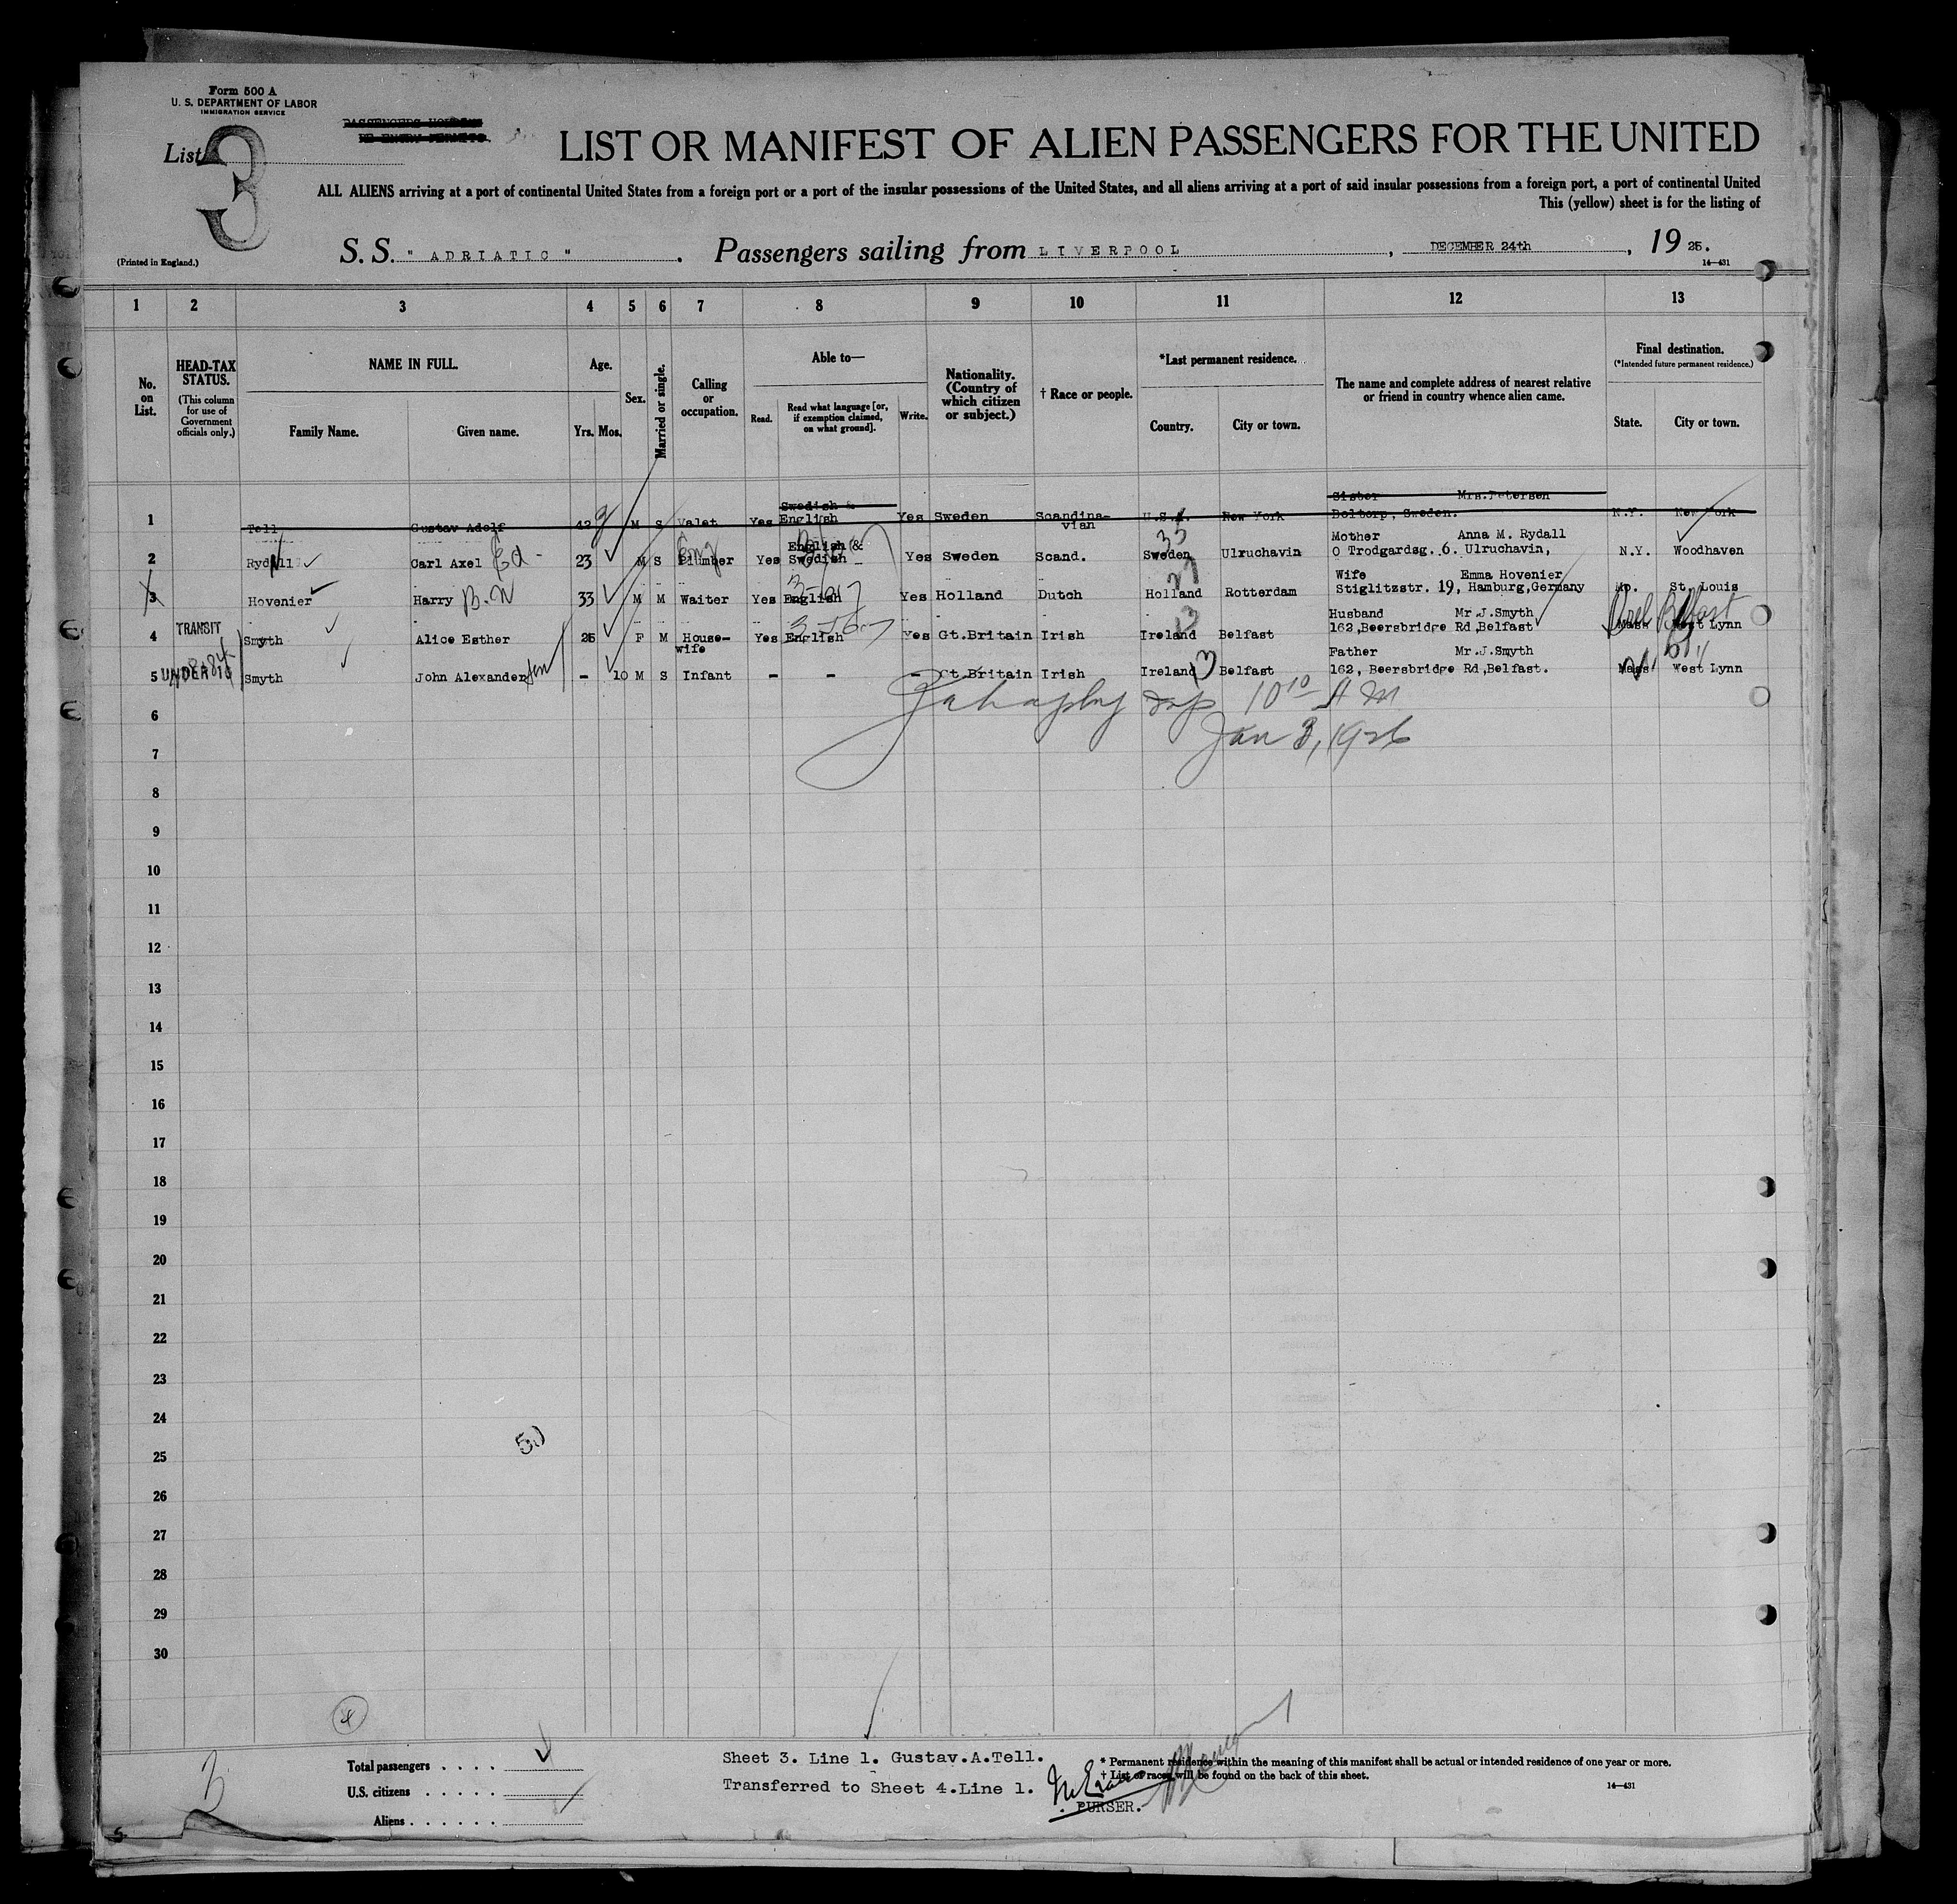 Form 500 A
U. S. DEPARTMENT OF LABOR
IMMIGRATION SERVICE
PASSENGERS HOLDING
RE-ENTRY PERMITS.
List 3
LIST OR MANIFEST OF ALIEN PASSENGERS FOR THE UNITED
ALL ALIENS arriving at a port of continental United States from a foreign port or a port of the insular possessions of the United States, and all aliens arriving at a port of said insular possessions from a foreign port, a port of continental United
This (yellow) sheet is for the listing of
(Printed in England.)
S. S. " ADRIATIC " . Passengers sailing from LIVERPOOL , DECEMBER 24th , 19 25.
14—431
1 2 3 4 5 6 7 8 9 10 11 12 13
No. on List.
HEAD-TAX STATUS.
(This column for use of Government officials only.)
NAME IN FULL.
Family Name. Given name.
Age.
Yrs. Mos.
Sex.
Married or single.
Calling or occupation.
Able to—
Read. Read what language [or, if exemption claimed, on what ground]. Write.
Nationality. (Country of which citizen or subject.)
† Race or people.
*Last permanent residence.
Country. City or town.
The name and complete address of nearest relative or friend in country whence alien came.
Final destination.
(*Intended future permanent residence.)
State. City or town.
Swedish & Sister Mrs.Petersen
1 Tell Gustav Adolf 42 M S Valet Yes English Yes Sweden Scandina-vian U.S.A. New York Boltorp, Sweden. N.Y. New York
English & 35 Mother Anna M. Rydall
2 Rydall Carl Axel Ed 23 M S Plumber Eng Yes Swedish Yes Sweden Scand. Sweden Ulruchavin O Trodgardsg. 6. Ulruchavin, N.Y. Woodhaven
27 Wife Emma Hovenier
3 Hovenier Harry B.N 33 M M Waiter Yes English Yes Holland Dutch Holland Rotterdam Stiglitzstr. 19, Hamburg,Germany Mo. St. Louis
TRANSIT 13 Husband Mr.J.Smyth Belfast
4 Smyth Alice Esther 26 F M House-wife Yes English Yes Gt.Britain Irish Ireland Belfast 162,Beersbridge Rd,Belfast Mass West Lynn
UNDER 16 Father Mr.J.Smyth
5 Smyth John Alexander — 10 M S Infant - - - Gt.Britain Irish Ireland 13 Belfast 162, Beersbridge Rd,Belfast. Mass West Lynn
10 10 A M
6
Jan 3, 1926
7
8
9
10
11
12
13
14
15
16
17
18
19
20
21
22
23
24
25
26
27
28
29
30
3
Total passengers . . . .
U.S. citizens . . . . .
Aliens . . . . . .
Sheet 3. Line 1. Gustav.A.Tell.
Transferred to Sheet 4.Line 1.
PURSER.
* Permanent residence within the meaning of this manifest shall be actual or intended residence of one year or more.
† List of races will be found on the back of this sheet.
14—431